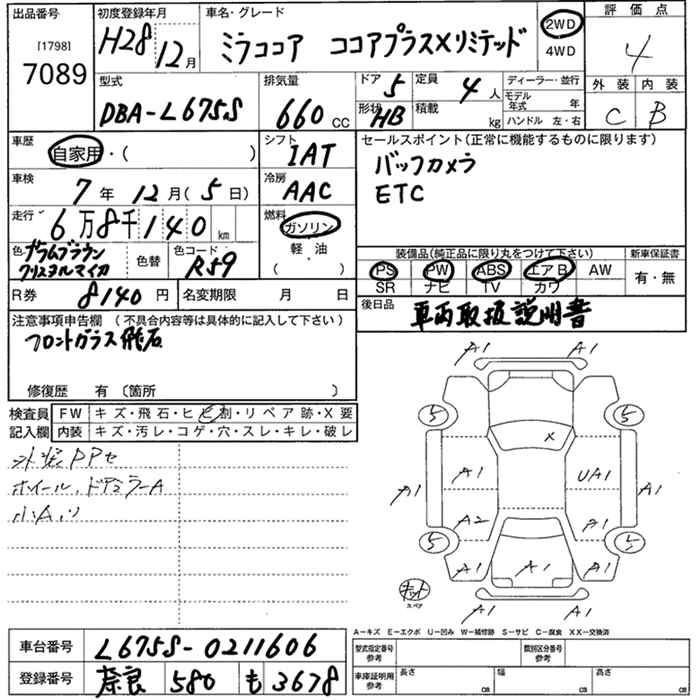 出品番号 初度登録年月 車名・グレード 評価点
[1798]
7089 H28 12月 ミラココア ココアプラスXリミテッド 2WD 4WD 4
外装 内装
C B
型式 排気量 ドア 5 定員 4人 ディーラー・並行
DBA-L675S 660cc 形状 HB 積載 kg モデル年式 年
ハンドル 左・右
車歴 シフト セールスポイント(正常に機能するものに限ります)
自家用・( ) IAT バックカメラ
車検 冷房 ETC
7年 12月(5日) AAC
走行 燃料
6万8千140km ガソリン
軽・油
( )
色 プラムブラウンクリスタルマイカ 色替 色コード R59
装備品(純正品に限り丸をつけて下さい) 新車保証書
PS PW ABS エアB AW 有・無
SR ナビ TV カワ
R券 8140円 名変期限 月 日
後日品 車両取扱説明書
注意事項申告欄(不具合内容等は具体的に記入して下さい)
フロントガラス飛石
修復歴 有〔箇所 〕
検査員記入欄 FW キズ・飛石・ヒビ割・リペア跡・X要
内装 キズ・汚レ・コゲ・穴・スレ・キレ・破レ
外装PPセ
ホイール、ドアミラーA
小Aハリ
A1 A1
5 5
X
A1 A1 UA1 A1
A2 A1
5 5
A1 A1 A1
キット
スペア
A1 A1
A-キズ E-エクボ U-凹み W-補修跡 S-サビ C-腐食 XX-交換済
車台番号 L675S-0211606
型式指定番号参考 類別区分番号参考
登録番号 奈良 580 も 3678
車庫証明用参考 長さ cm 幅 cm 高さ cm